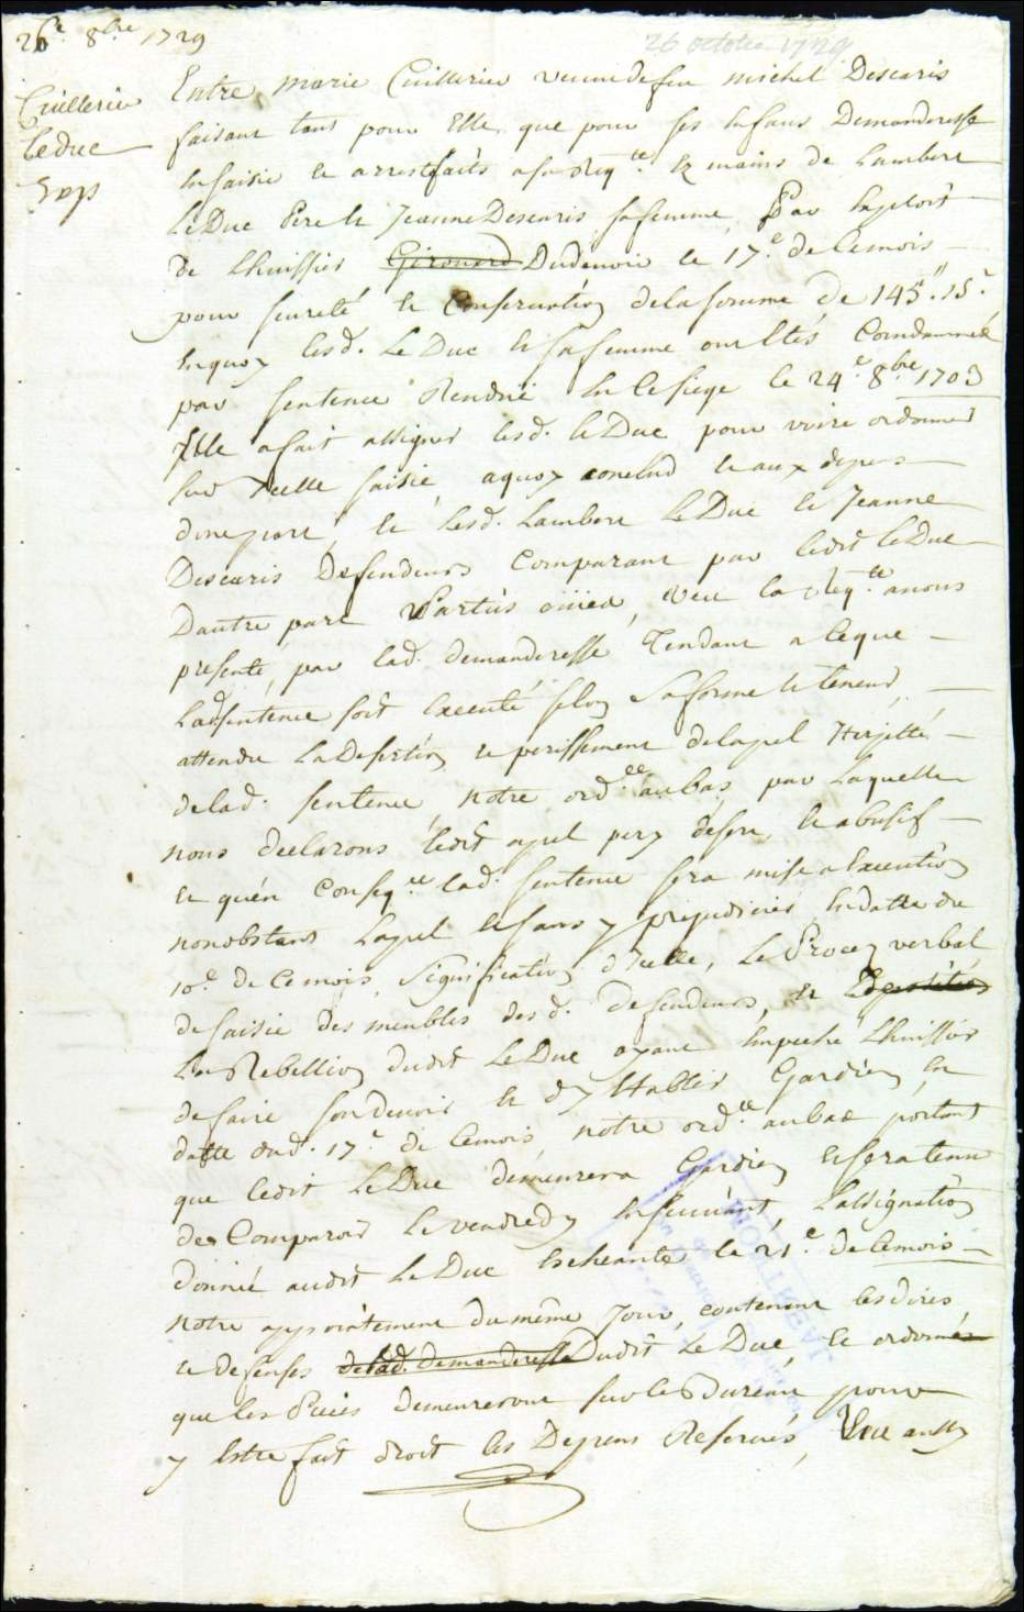 26e 8bre 1729
26 octobre 1729
Cuillerier
Leduc
Exp
Entre marie Cuillerier veuve de feu michel Descaris
faisant tant pour Elle que pour ses Enfans Demanderesse
En saisie et arrest faits a sa Reqte Ez mains de Lambert
Le Duc Pere et Jeanne Descaris sa femme, Par Exploit
De Lhuissier Girouard Dudevoir le 17e de Ce mois
pour seureté et Conservation de la somme de 145ll 15s
En quoy lesd. Le Duc et sa femme ont Etés Condamnés
par sentence Rendue En Ce siege le 24e 8bre 1703
Elle a fait assigner lesd. Le Duc pour voire ordonner
sur Icelle saisie aquoy conclud et aux depens
dune part, et lesd. Lambert Le Duc et Jeanne
Descaris Defendeurs Comparant par ledit Le Duc
Dautre part Parties ouies, Veu la Reqte anous
presenté, par lad. demanderesse Tendant a Ceque
Lad. sentence soit Executé selon sa forme et teneur
attendu La Desertion et perissement delapel Interjetté
delad. sentence, notre ordce aubas par Laquelle
nous declarons ledit apel pery desert et abusif
et quén Conseqce lad. sentence sera mise a Execution
nonobstant Lapel et sans y prejudicier En datte du
10e de Ce mois, signification d'Icelle, Le Procez verbal
de saisie des meubles desd. defendeurs, et
La Rebellion dudit Le Duc ayant Empeché Lhuissier
defaire son devoir et dy Etablir Gardien, En
datte dud. 17e de Ce mois notre ordce aubas portant
que ledit Le Duc demeurera Gardien et sera tenu
de Comparoir le vendredy Ensuivant, Lassignation
Donnée audit Le Duc Escheante le 21e de Ce mois
notre appointement du même Jour, contenant les dires
et defenses de lad. demanderesse Dudit Le Duc, et ordonné
que les Pieces demeureront sur le Bureau pour
y Estre fait droit les Depens Reservés, Veu aussy